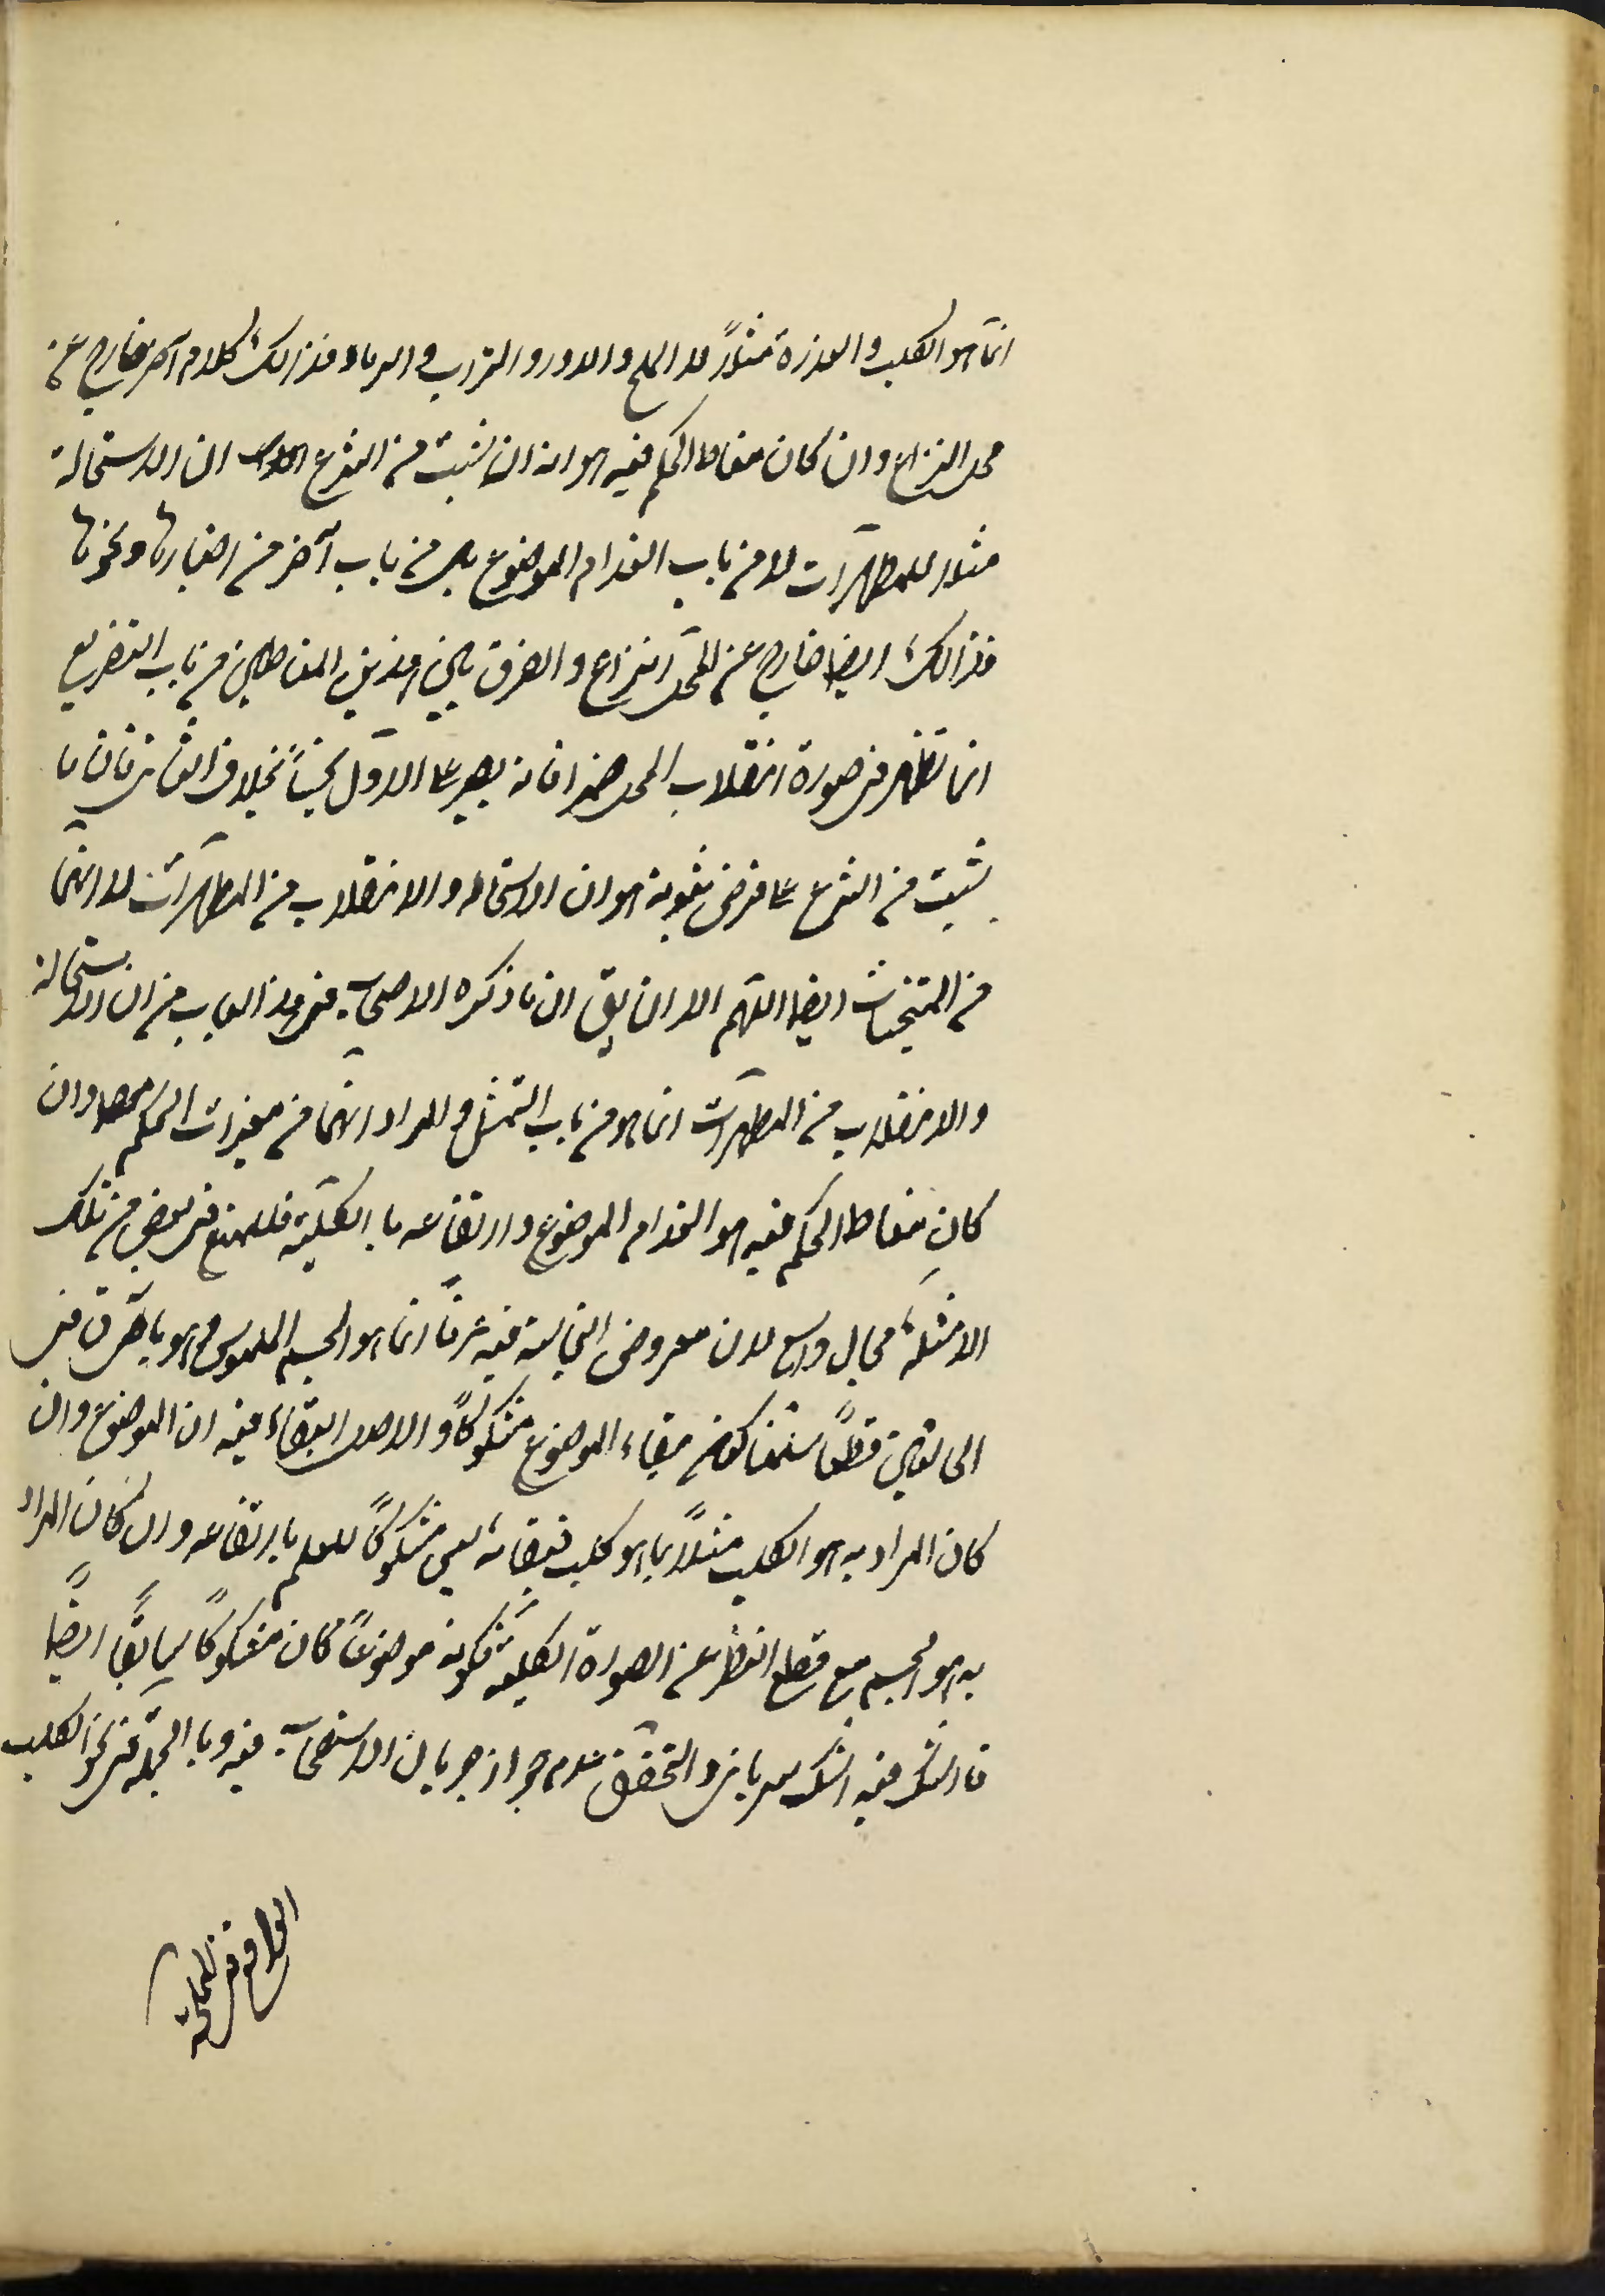 انما هو الكلب والعذرة مثلاً لا الملح والدود والتراب والرماد فذالك كلام آخر خارج عن
محل النزاع وان كان مناط الحكم فيه هو انه ان ثبت من الشرع ان الاستحالة
مثلا للمطهرات لا من باب انعدام الموضوع بل من باب آخر من اخبارها ونحوها
فذالك ايضا خارج عن المحل النزاع والفرق بين هذين المناطين من باب التفريع
انما تظهر فى صورة انقلاب المحل فانه يصير على الاول نجساً بخلاف الثانى فان ما
يثبت من الشرع على فرض ثبوته هو ان الاستحاله والانقلاب من المطهرات لا انهما
من المنجسات ايضا اللهم الا ان يق ان ما ذكره الاصحاب فى هذا الباب من ان الاستحالة
والانقلاب من المطهرات انما هو من باب التمثيل والمراد انهما من مغيرات الحكم وان
كان مناط الحكم فيه هو انعدام الموضوع وارتفاعه بالكلية فللمنع فى بعض من تلك
الامثلة مجال واسع لان معروض النجاسة فيه عرفاً انما هو الجسم الملموس وهو باق فى
الحالتين قطعاً سلمنا كون بقاء الموضوع مشكوكاً والاصل البقاء فيه ان الموضوع وان
كان المراد به هو الكلب مثلاً بما هو كلب فبقائه ليس مشكوكاً للعلم بارتفاعه وان كان المراد
به هو الجسم مع قطع النظر عن الصورة الكلبية فكونه موضوعاً كان مشكوكاً سابقاً ايضاً
فالشك فيه الشك سريانى والتحقق عدم جواز جريان الاستصحاب فيه وبالجملة فى نحو الكلب
الواقع فى المملحة